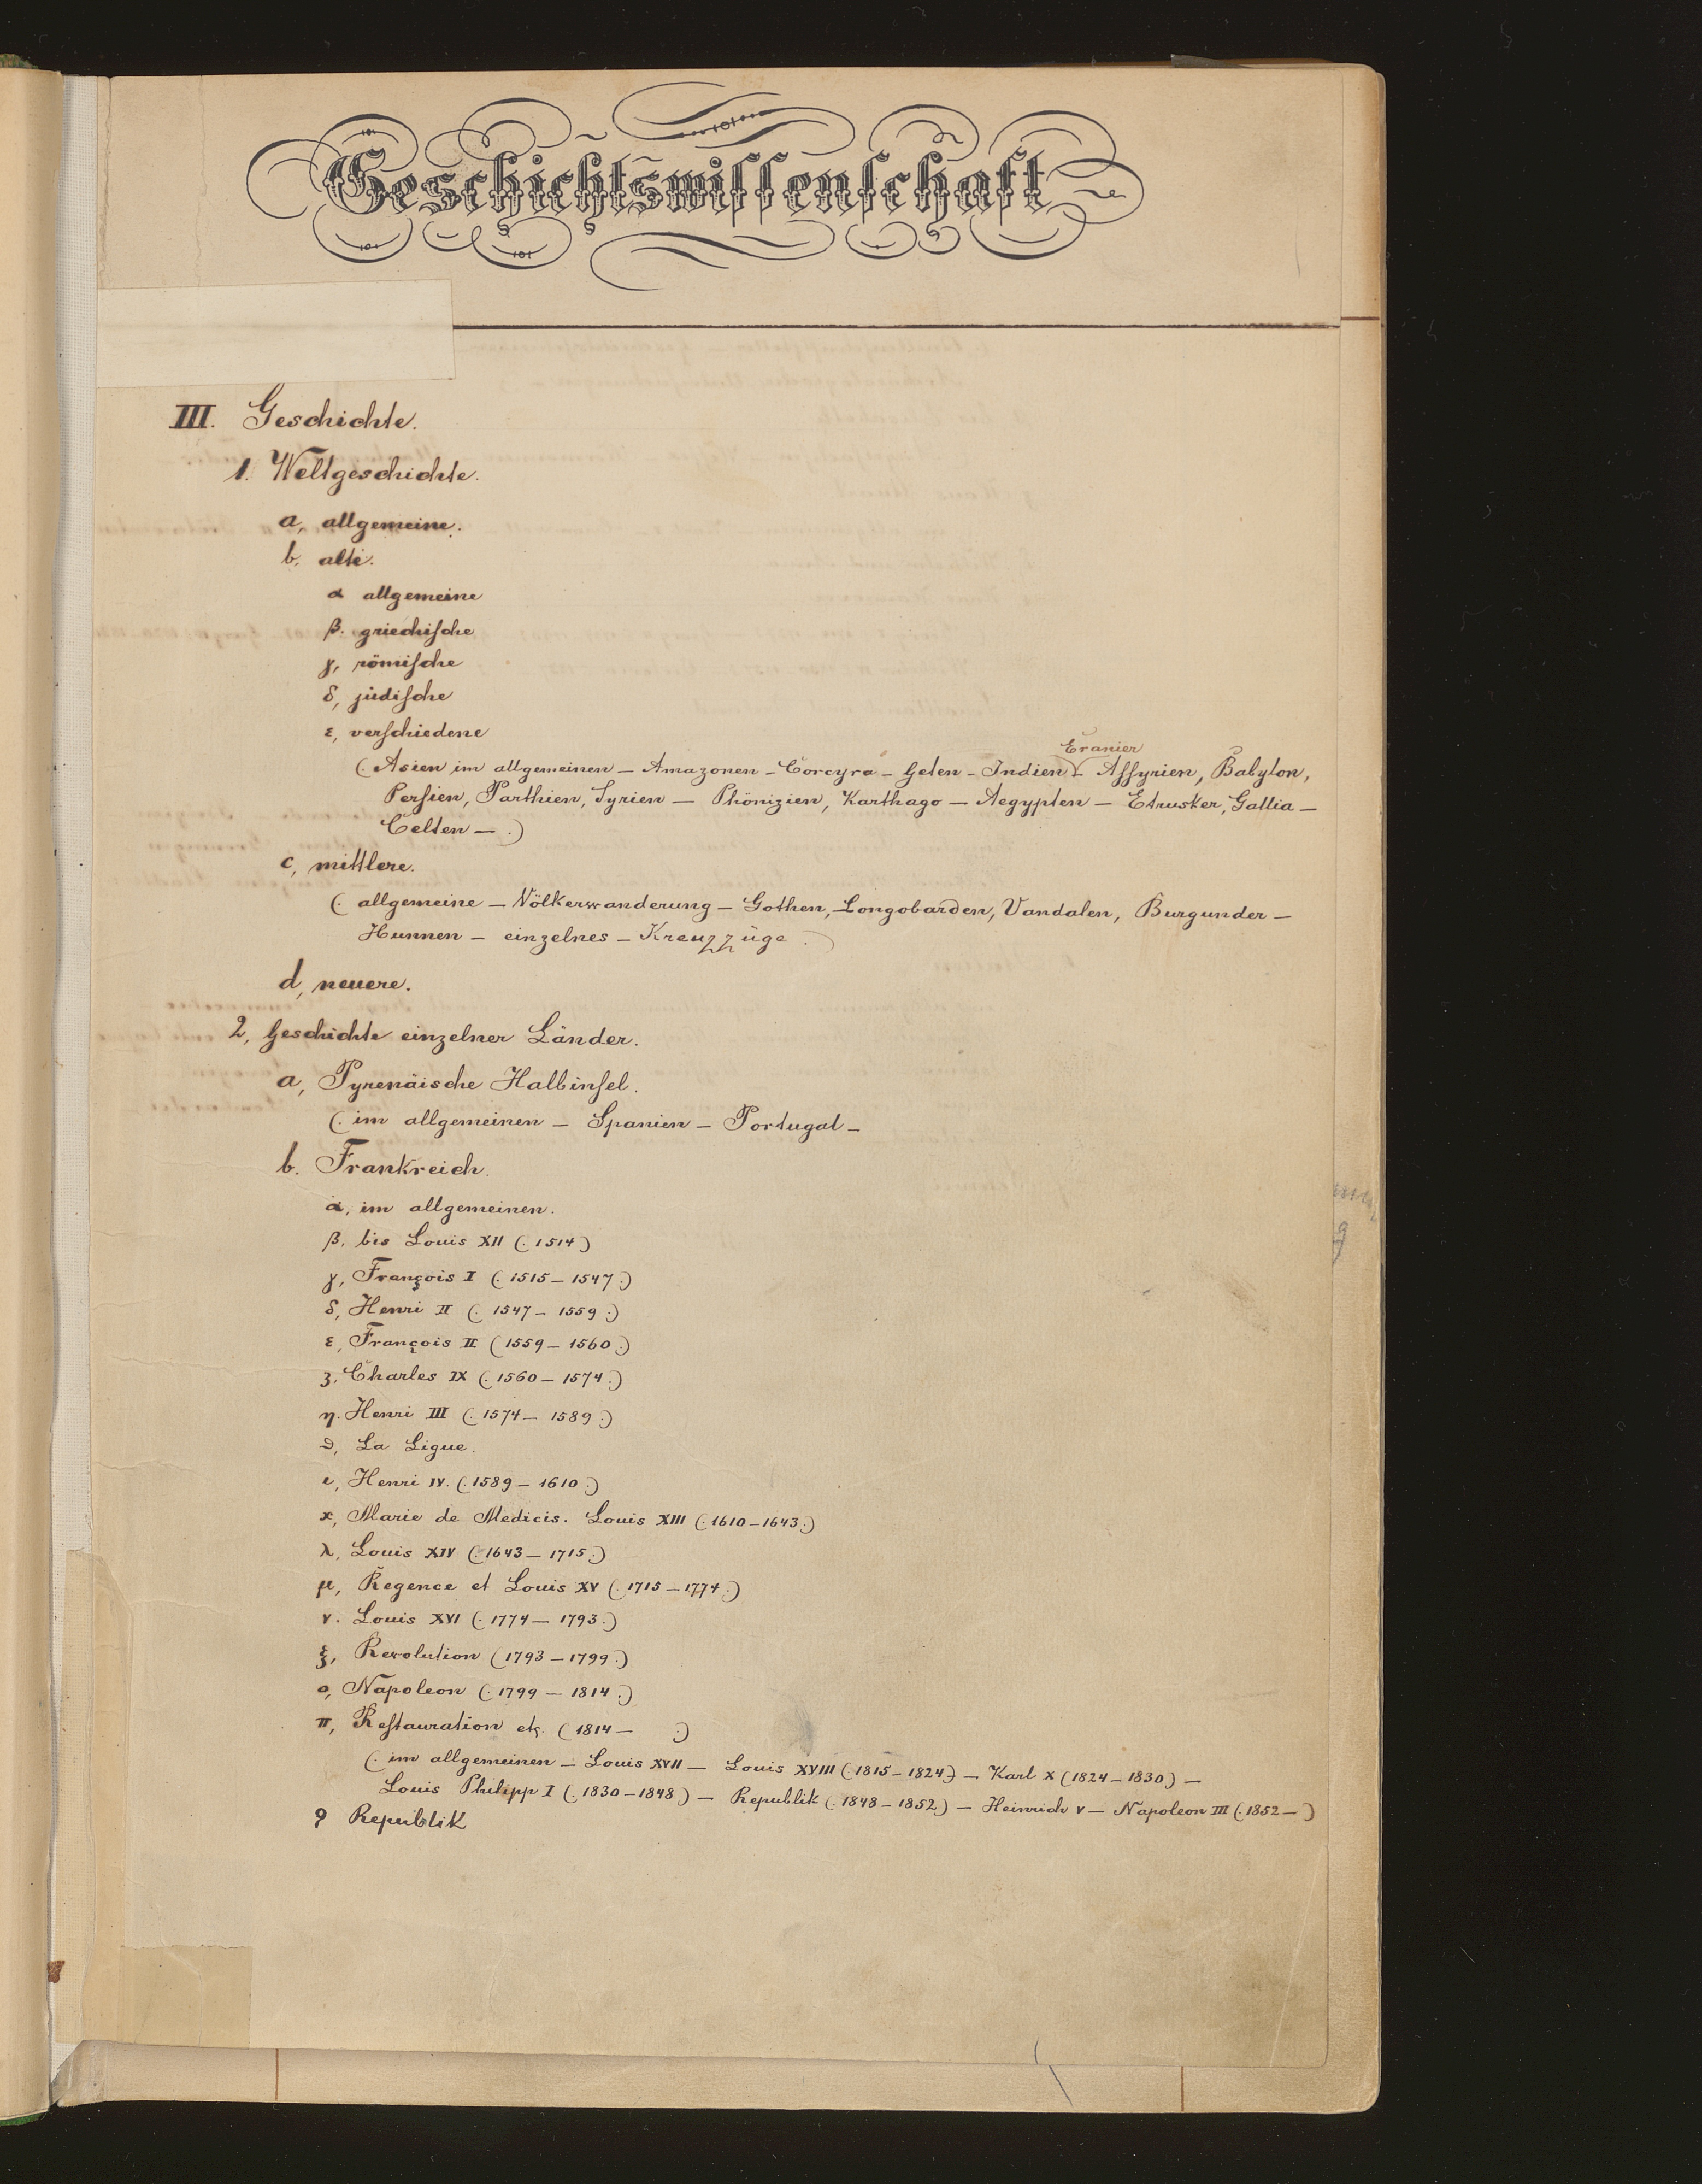 Geschichtswiſſenſchaft
III. Geschichte.
1. Weltgeschichte.
a, allgemeine.
b. alte.
α allgemeine
β. griechiſche
γ, römiſche
δ, jüdiſche
ε, verſchiedene
Eranier
(. Asien im allgemeinen – Amazonen – Corcyra – Geten – Indien – Aſſyrien, Babylon,
Perſien, Parthien, Syrien – Phönizien, Karthago – Aegypten – Etrusker, Gallia –
Celten – .)
c, mittlere.
(. allgemeine – Völkerwanderung – Gothen, Longobarden, Vandalen, Burgunder –
Hunnen – einzelnes – Kreuzzüge .)
d, neuere.
2, Geschichte einzelner Länder.
a, Pyrenäische Halbinſel.
(. im allgemeinen – Spanien – Portugal –
b. Frankreich.
α, im allgemeinen.
β, bis Louis XII (. 1514)
γ, François I (. 1515 – 1547 .)
δ, Henri II (. 1547 – 1559 .)
ε, François II (1559 – 1560 .)
ʒ. Charles IX (. 1560 – 1574 .)
η. Henri III (. 1574 – 1589 .)
ϑ, La Ligue.
ι, Henri IV. (. 1589 – 1610 .)
ϰ, Marie de Medicis. Louis XIII (. 1610 – 1643 .)
λ, Louis XIV (. 1643 – 1715 .)
μ, Regence et Louis XV (. 1715 – 1774 .)
ν. Louis XVI (. 1774 – 1793 .)
ξ, Revolution (1793 – 1799 .)
ο, Napoleon (. 1799 – 1814 .)
π, Reſtauration etc. (1814 – .)
(. im allgemeinen – Louis XVII – Louis XVIII (. 1815 – 1824) – Karl X (1824 – 1830) –
Louis Philipp I (. 1830 – 1848) – Republik (. 1848 – 1852) – Heinrich V – Napoleon III (. 1852 – )
ρ Republik